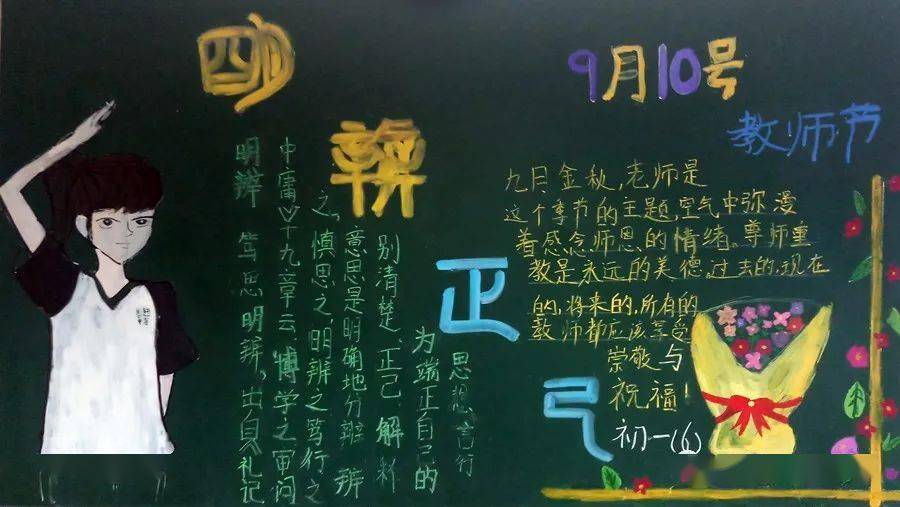 明
辨
正
己
明辨 笃思明辨，出自礼记
中庸十九章云，博学之审问
之，慎思之，明辨之笃行之
意思是明确地分辨 辨
别清楚、正己 解释
为端正自己的
思想言行
9月10号
教师节
九月金秋,老师是
这个季节的主题,空气中弥漫
着感念师恩的情绪。尊师重
教是永远的美德,过去的,现在
的,将来的,所有的
教师都应该享受
崇敬与
祝福!
初一(6)